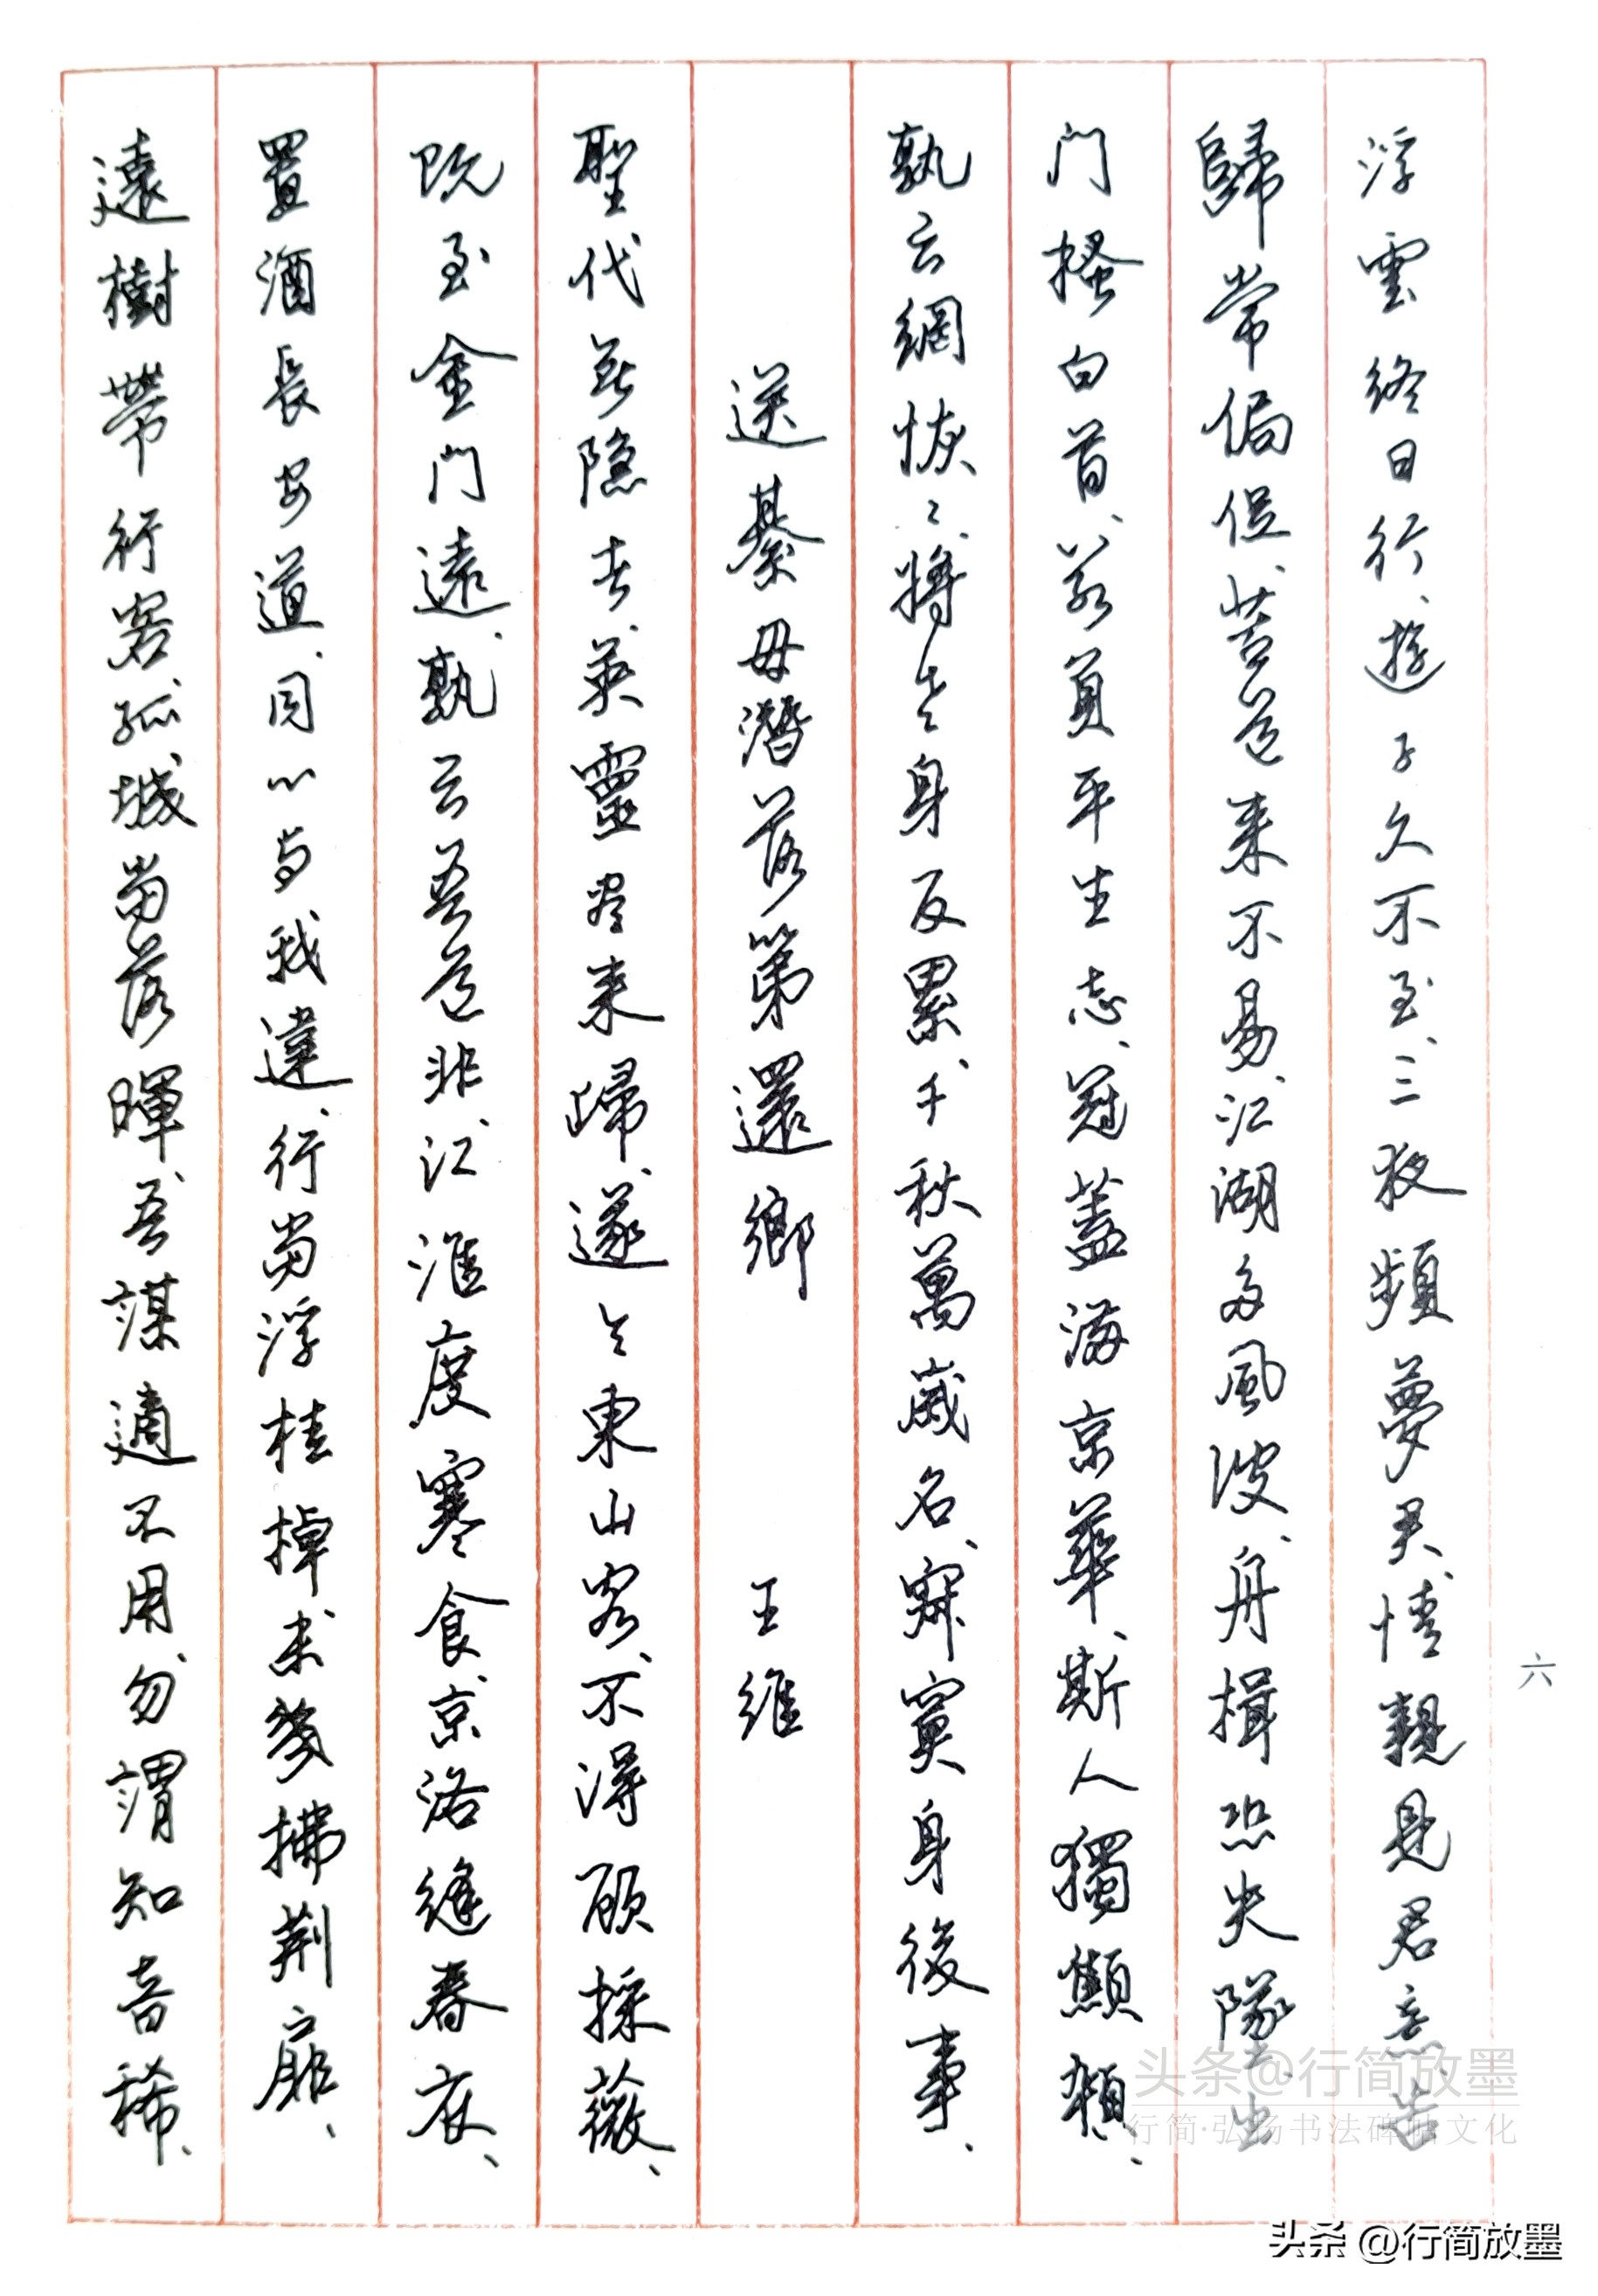 浮雲終日行、遊子久不至、三夜頻夢君、情親見君意、告
歸常侷促、苦道来不易、江湖多風波、舟楫恐失墜、出
门搔白首、若負平生志、冠蓋滿京華、斯人獨顦顇、
孰云網恢〻、將老身反累、千秋萬歲名、寂寞身後事、
送綦毋潛落第還鄉 王維
聖代無隐者、英靈盡来歸、遂令東山客、不得顧採薇、
既至金門遠、孰云吾道非、江淮度寒食、京洛縫春衣、
置酒長安道、同心與我違、行當浮桂棹、未幾拂荆扉、
遠樹帶行客、孤城當落暉、吾謀適不用、勿謂知音稀、
六
头条@行简放墨
行简·弘扬书法碑帖文化
头条 @行简放墨